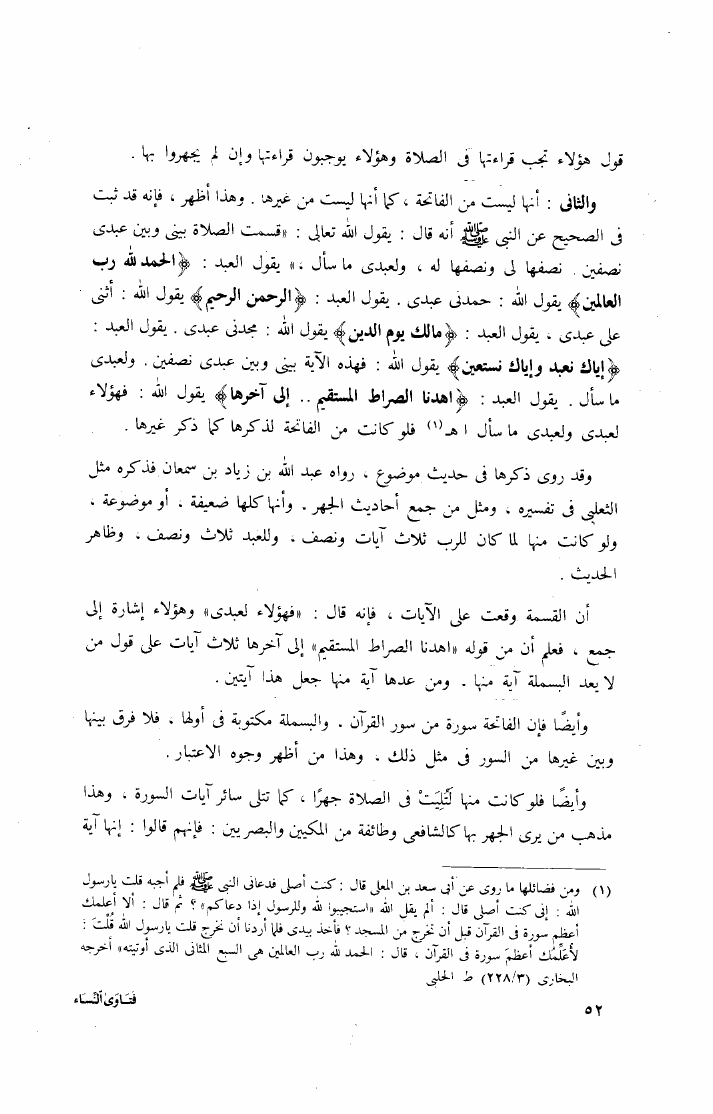 قول هؤلاء تجب قراءتها فى الصلاة وهؤلاء يوجبون قراءتها وإن لم يجهروا بها .
والثانى : أنها ليست من الفاتحة ، كما أنها ليست من غيرها . وهذا أظهر ، فإنه قد ثبت
فى الصحيح عن النبى ﷺ أنه قال : يقول الله تعالى : «قسمت الصلاة بينى وبين عبدى
نصفين . نصفها لى ونصفها له ، ولعبدى ما سأل ،» يقول العبد : ﴿الحمد لله رب
العالمين﴾ يقول الله : حمدنى عبدى . يقول العبد : ﴿الرحمن الرحيم﴾ يقول الله : أثنى
على عبدى ، يقول العبد : ﴿مالك يوم الدين﴾ يقول الله : مجدنى عبدى . يقول العبد :
﴿إياك نعبد وإياك نستعين﴾ يقول الله : فهذه الآية بينى وبين عبدى نصفين . ولعبدى
ما سأل . يقول العبد : ﴿اهدنا الصراط المستقيم .. إلى آخرها﴾ يقول الله : فهؤلاء
لعبدى ولعبدى ما سأل ا هـ(١) فلو كانت من الفاتحة لذكرها كما ذكر غيرها .
وقد روى ذكرها فى حديث موضوع ، رواه عبد الله بن زياد بن سمعان فذكره مثل
الثعلبى فى تفسيره ، ومثل من جمع أحاديث الجهر . وأنها كلها ضعيفة ، أو موضوعة ،
ولو كانت منها لما كان للرب ثلاث آيات ونصف ، وللعبد ثلاث ونصف ، وظاهر
الحديث .
أن القسمة وقعت على الآيات ، فإنه قال : «فهؤلاء لعبدى» وهؤلاء إشارة إلى
جمع ، فعلم أن من قوله «اهدنا الصراط المستقيم» إلى آخرها ثلاث آيات على قول من
لا يعد البسملة آية منها . ومن عدها آية منها جعل هذا آيتين .
وأيضًا فإن الفاتحة سورة من سور القرآن . والبسملة مكتوبة فى أولها ، فلا فرق بينها
وبين غيرها من السور فى مثل ذلك ، وهذا من أظهر وجوه الاعتبار .
وأيضًا فلو كانت منها لَتُلِيَتْ فى الصلاة جهرًا ، كما تتلى سائر آيات السورة ، وهذا
مذهب من يرى الجهر بها كالشافعى وطائفة من المكيين والبصريين : فإنهم قالوا : إنها آية
(١) ومن فضائلها ما روى عن أبى سعد بن المعلى قال : كنت أصلى فدعانى النبى ﷺ فلم أجبه قلت يارسول
الله : إنى كنت أصلى قال : ألم يقل الله «استجيبوا لله وللرسول إذا دعاكم» ؟ ثم قال : ألا أعلمك
أعظم سورة فى القرآن قبل أن تخرج من المسجد ؟ فأخذ بيدى فلما أردنا أن نخرج قلت يارسول الله قُلْتَ :
لأعَلِّمَنَّك أعظمَ سورة فى القرآن ، قال : الحمد لله رب العالمين هى السبع المثانى الذى أوتيته» أخرجه
البخارى (٢٢٨/٣) ط الحلبى
فتاوى النساء
٥٢